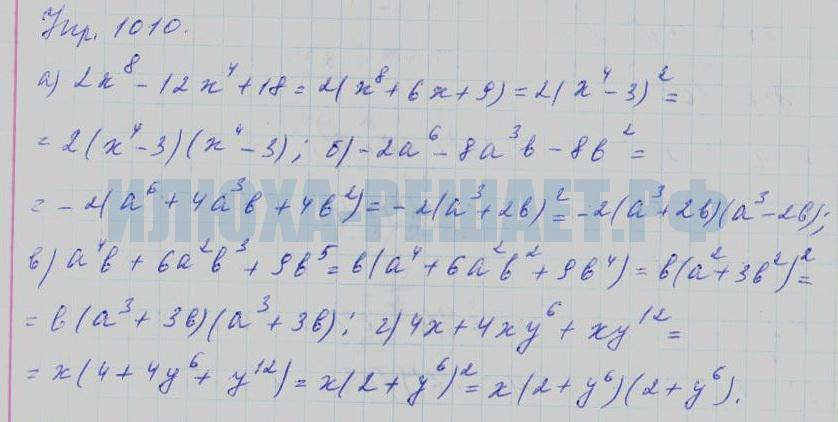 Упр. 1010.
а) 2x⁸ - 12x⁴ + 18 = 2(x⁸ + 6x + 9) = 2(x⁴ - 3)² =
= 2(x⁴ - 3)(x⁴ - 3); б) -2a⁶ - 8a³b - 8b² =
= -2(a⁶ + 4a³b + 4b²) = -2(a³ + 2b)² = -2(a³ + 2b)(a³ - 2b);
ИЛЮХА-РЕШАЕТ.РФ
в) a⁴b + 6a²b³ + 9b⁵ = b(a⁴ + 6a²b² + 9b⁴) = b(a² + 3b²)² =
= b(a³ + 3b)(a³ + 3b); г) 4x + 4xy⁶ + xy¹² =
= x(4 + 4y⁶ + y¹²) = x(2 + y⁶)² = x(2 + y⁶)(2 + y⁶).